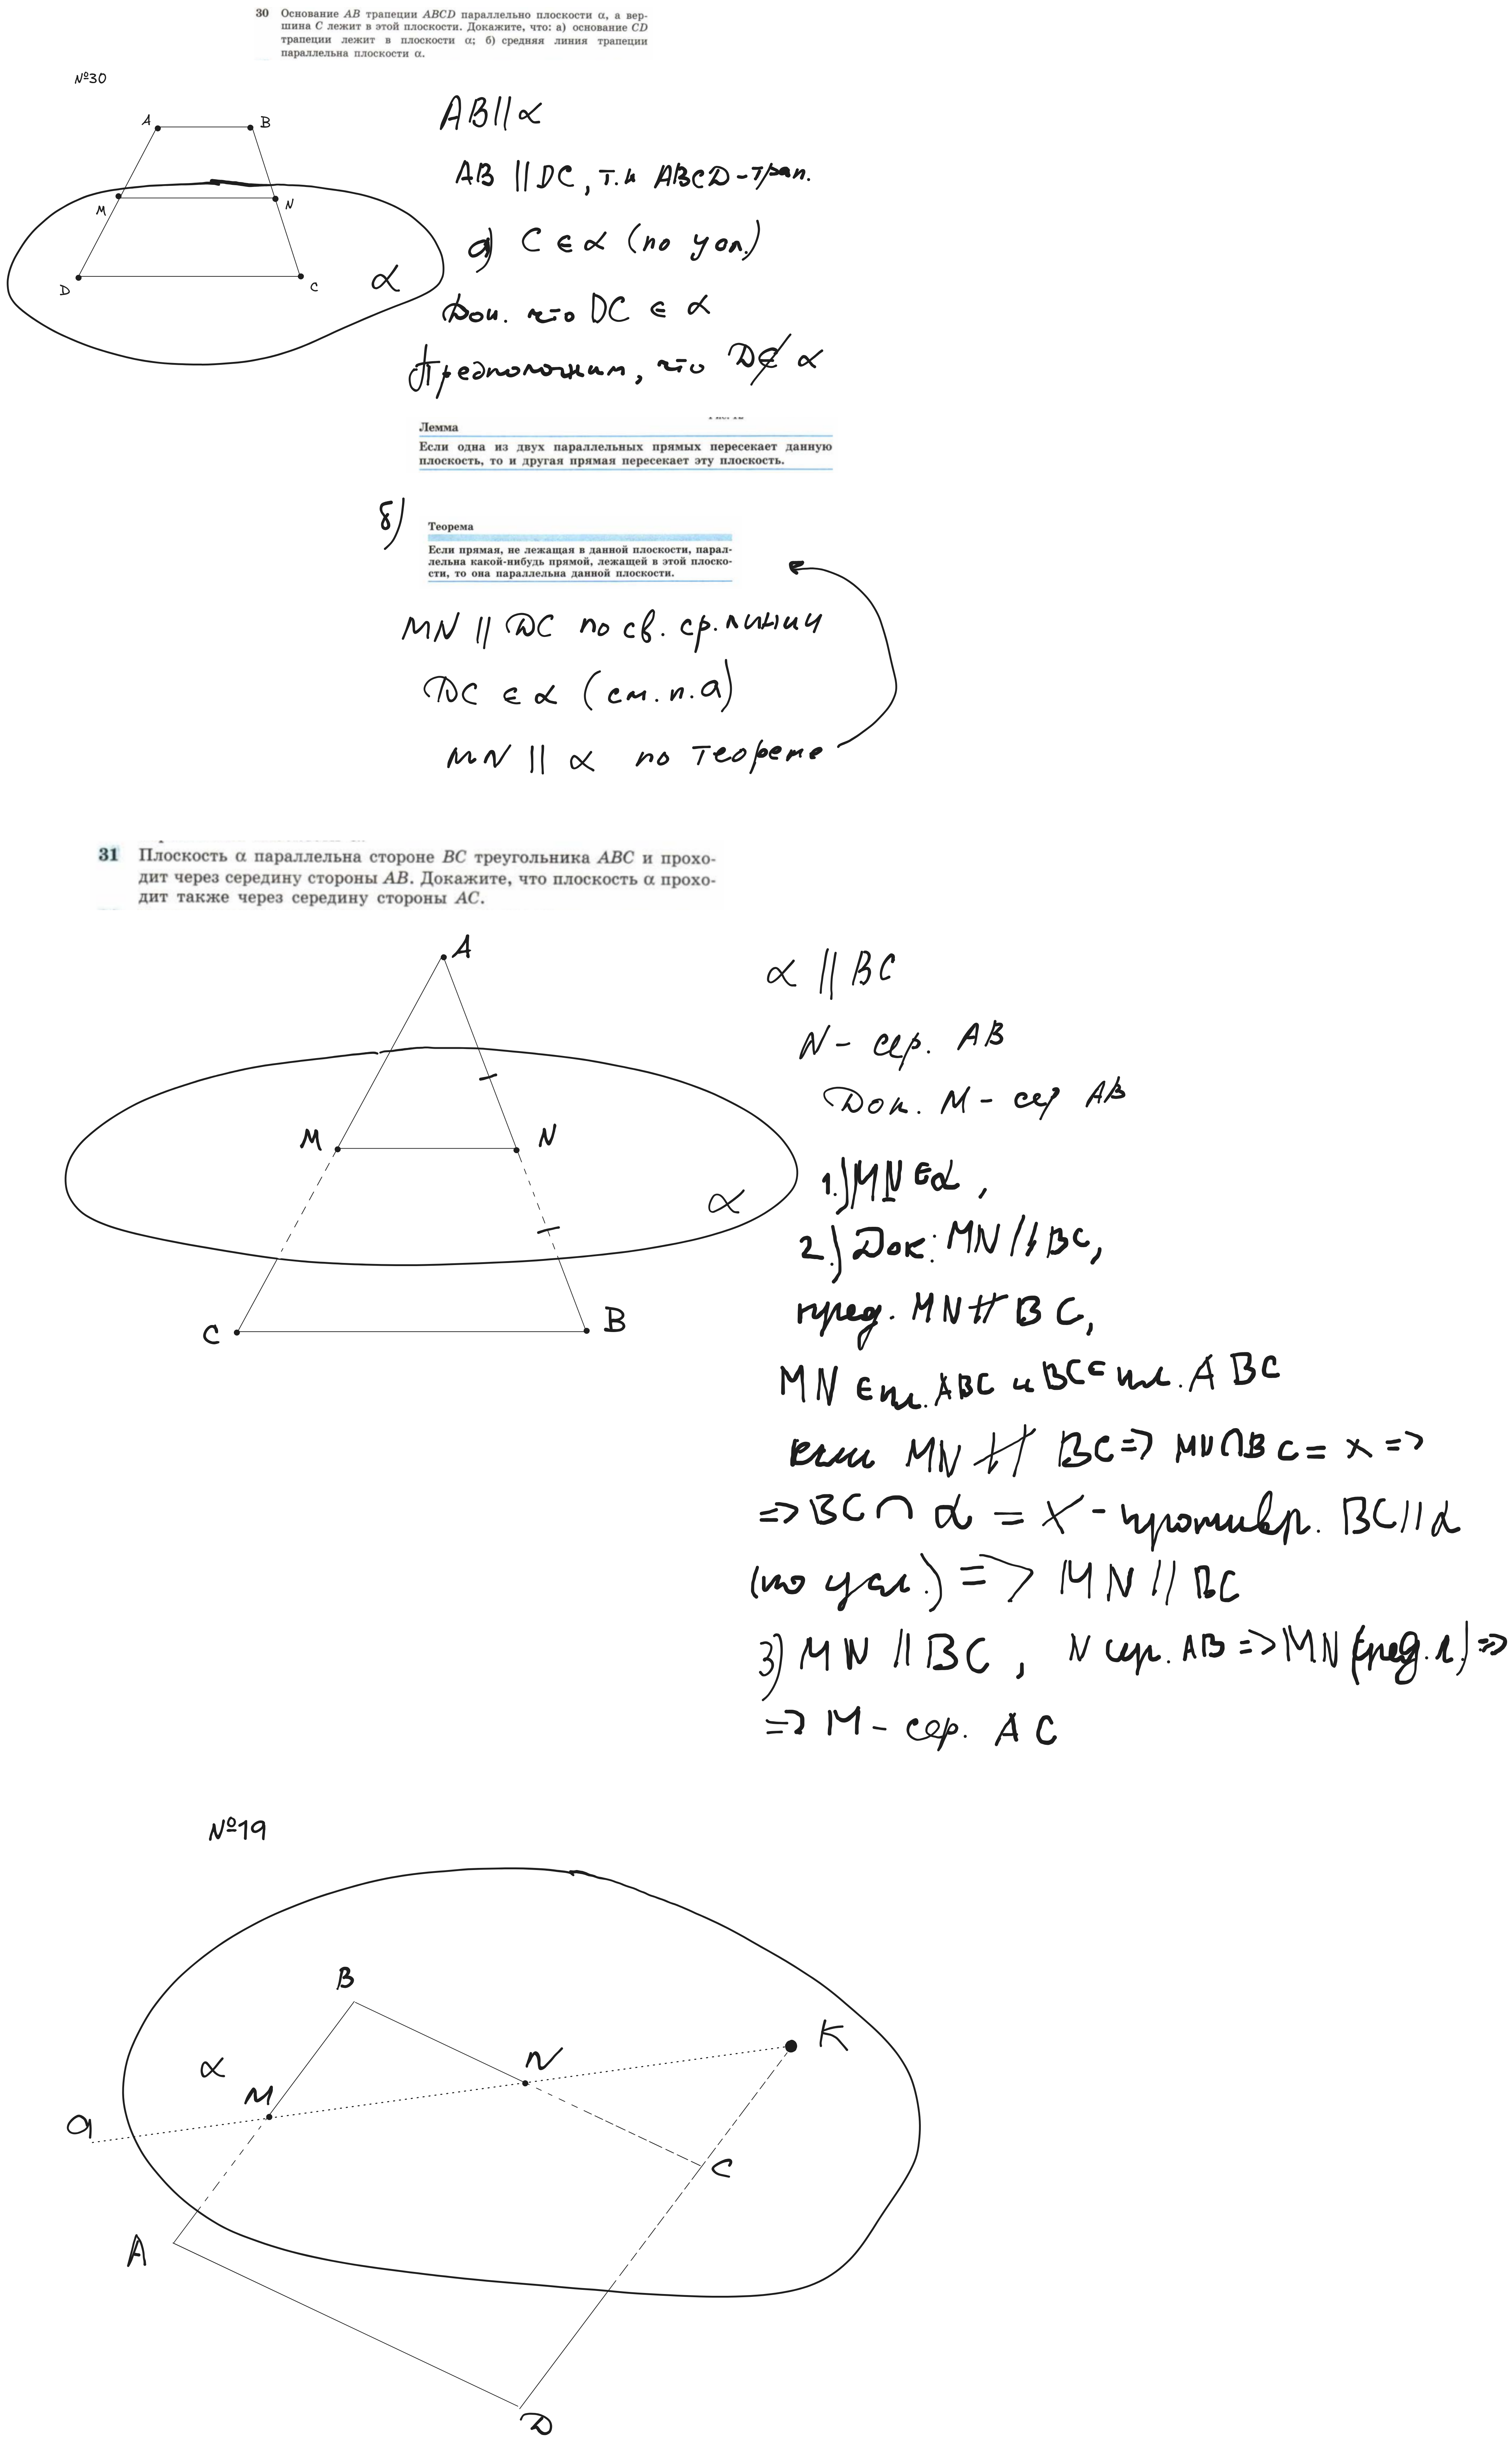 30 Основание AB трапеции ABCD параллельно плоскости α, а вер-
шина C лежит в этой плоскости. Докажите, что: а) основание CD
трапеции лежит в плоскости α; б) средняя линия трапеции
параллельна плоскости α.
№30
A B
M N
D C α
AB || α
AB || DC, т.к ABCD - трап.
а) C ∈ α (по усл.)
Док. что DC ∈ α
Предположим, что D ∉ α
Лемма
Если одна из двух параллельных прямых пересекает данную
плоскость, то и другая прямая пересекает эту плоскость.
б)
Теорема
Если прямая, не лежащая в данной плоскости, парал-
лельна какой-нибудь прямой, лежащей в этой плоско-
сти, то она параллельна данной плоскости.
MN || DC по св. ср. линии
DC ∈ α (см. п. а)
MN || α по теореме
31 Плоскость α параллельна стороне BC треугольника ABC и прохо-
дит через середину стороны AB. Докажите, что плоскость α прохо-
дит также через середину стороны AC.
A
M N
α
C B
α || BC
N - сер. AB
Док. M - сер AB
1.) MN ∈ α,
2.) Док: MN || BC,
пред. MN ∦ BC,
MN ∈ пл. ABC и BC ∈ пл. ABC
если MN ∦ BC => MN ∩ BC = x =>
=> BC ∩ α = X - противр. BC || α
(по усл.) => MN || BC
3) MN || BC, N сер. AB => MN (сред. л.) =>
=> M - сер. AC
№19
B
K
α N
M
a
C
A
D